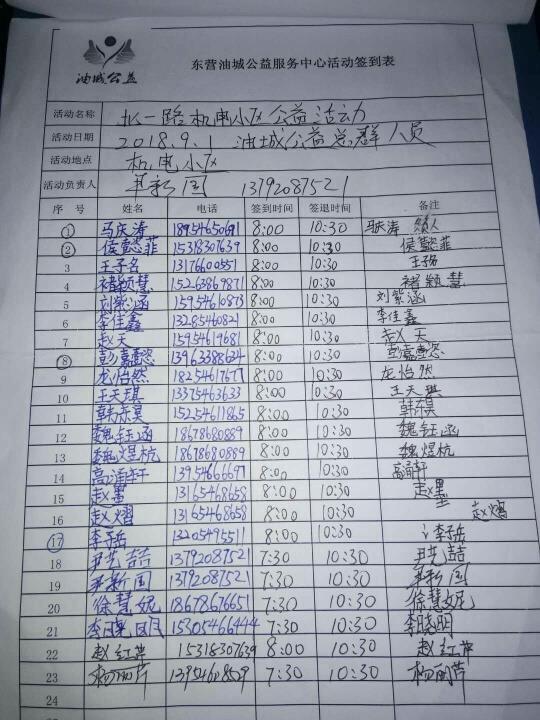 油城公益
东营油城公益服务中心活动签到表
活动名称 北一路机电小区公益活动
活动日期 2018.9.1 油城公益总群人员
活动地点 机电小区
活动负责人 尹新国 13792087521
序号 姓名 电话 签到时间 签退时间 备注
1 马庆涛 18954650691 8:00 10:30 马庆涛 领人
2 侯懿菲 15318307639 8:00 10:30 侯懿菲
3 王子名 13176600551 8:00 10:30 王子名
4 褚颖慧 15263869871 8:00 10:30 褚颖慧
5 刘紫涵 15954610873 8:00 10:30 刘紫涵
6 李佳鑫 13285460821 8:00 10:30 李佳鑫
7 赵天 15954619681 8:00 10:30 赵天
8 彭嘉懿 13963388634 8:00 10:30 彭嘉懿
9 龙怡然 18254617677 8:00 10:30 龙怡然
10 王天琪 13375463633 8:00 10:30 王天琪
11 韩 昊 15254611865 8:00 10:30 韩 昊
12 魏钰涵 18678680889 8:00 10:30 魏钰涵
13 魏煜杭 18678680889 8:00 10:30 魏煜杭
14 高 轩 13954666697 8:00 10:30 高 轩
15 赵墨 13165468658 8:00 10:30 赵墨
16 赵熠 13165468658 8:00 10:30 赵熠
17 李岳 13205495511 8:00 10:30 李岳
18 尹艺喆 13792087521 7:30 10:30 尹艺喆
19 尹新国 13792087521 7:30 10:30 尹新国
20 徐慧妮 18678676651 7:30 10:30 徐慧妮
21 李晓明 15305466444 7:30 10:30 李晓明
22 赵红芹 15318307639 8:00 10:30 赵红芹
23 杨丽芹 13954608509 7:30 10:30 杨丽芹
24